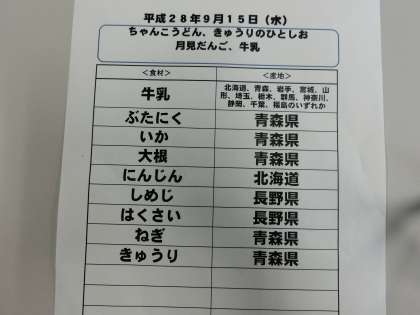 平成28年9月15日（水）
ちゃんこうどん、きゅうりのひとしお
月見だんご、牛乳
＜食材＞ ＜産地＞
牛乳 北海道、青森、岩手、宮城、山
形、埼玉、栃木、群馬、神奈川、
静岡、千葉、福島のいずれか
ぶたにく 青森県
いか 青森県
大根 青森県
にんじん 北海道
しめじ 長野県
はくさい 長野県
ねぎ 青森県
きゅうり 青森県